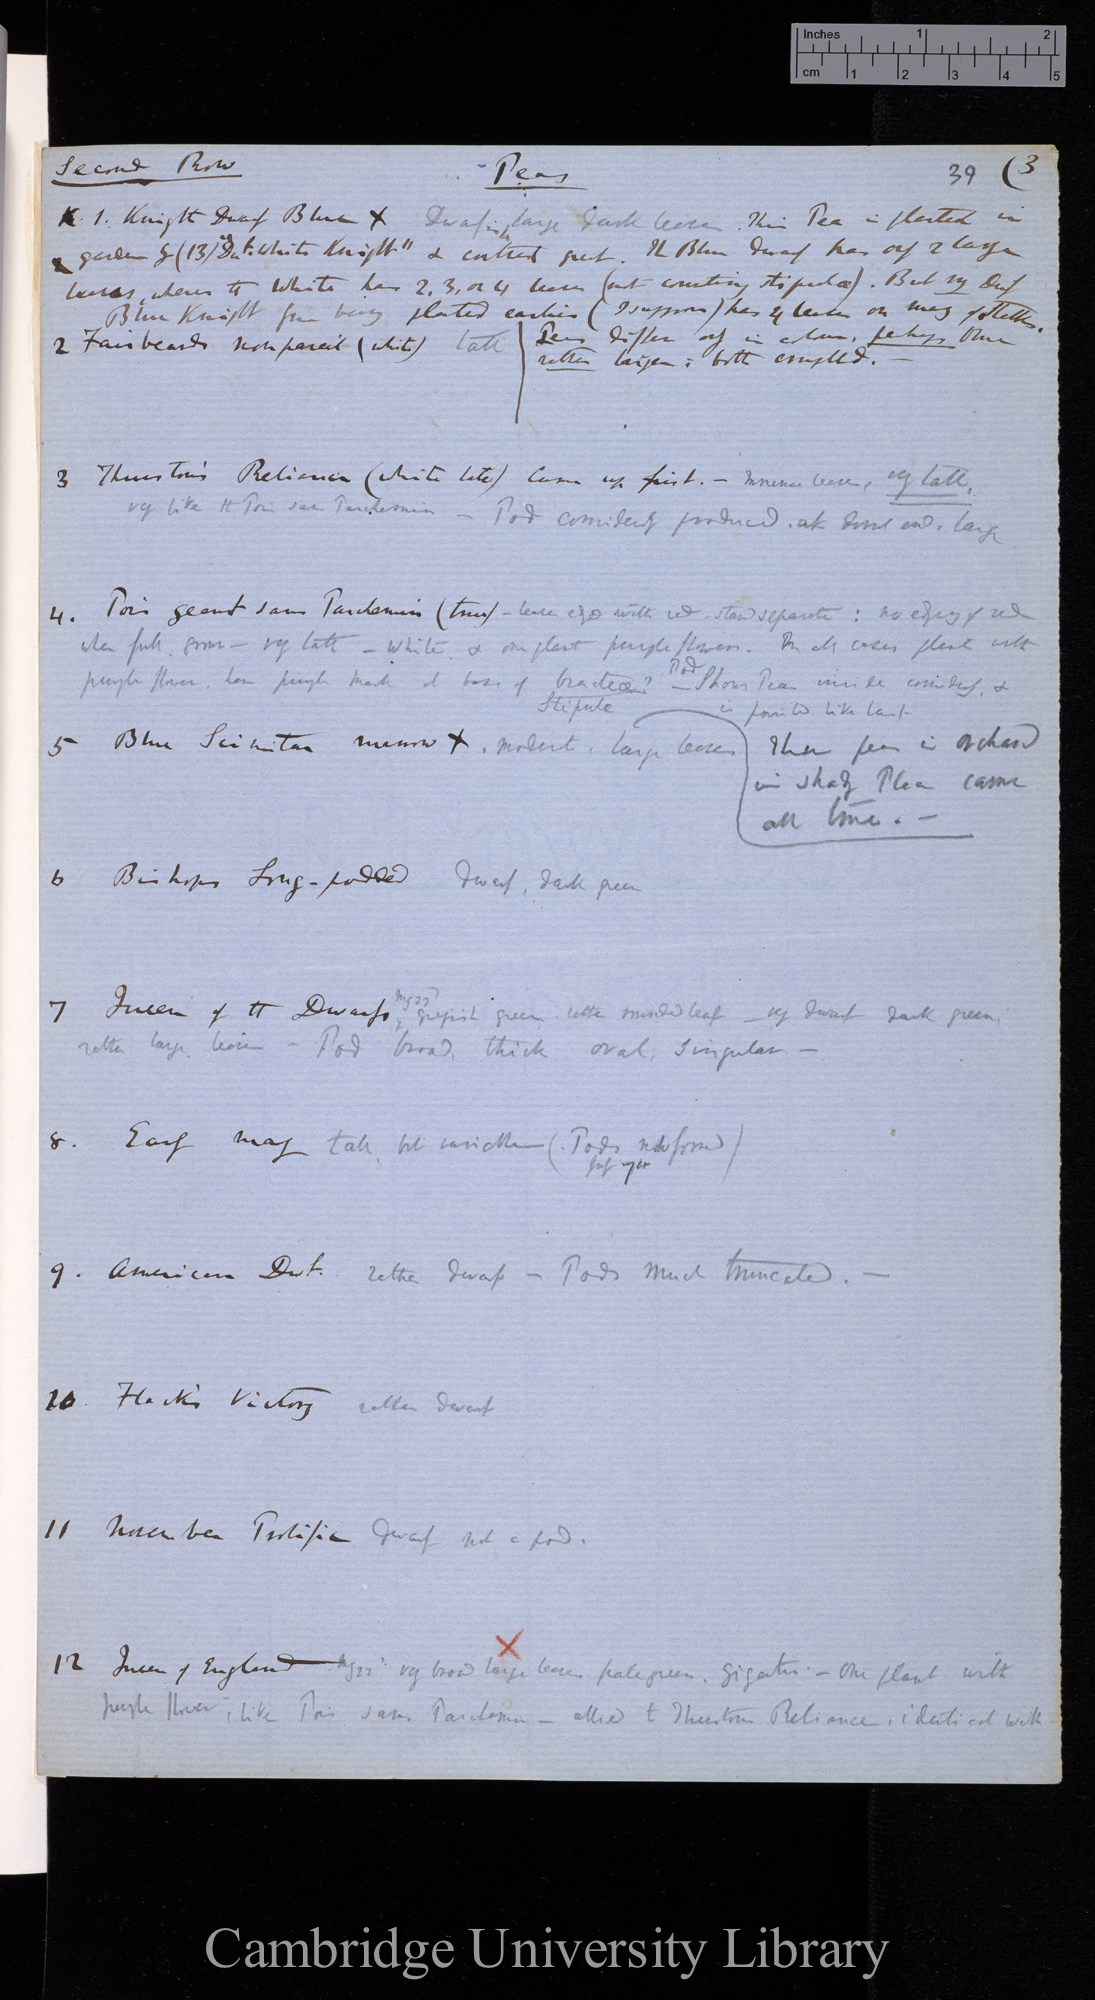 Inches 1 2
cm 1 2 3 4 5
Second Row Peas 39 (3
K. 1. Knight Dwarf Blue X Dwarfish large dark leaves. This Pea is planted in
garden by (13) "Dwf. White Knight" & contrast great. The Blue dwarf has only 2 large
leaves, whereas the White has 2, 3, or 4 leaves (not counting stipulae). But my Dwarf
Blue Knight from being planted earlier (I suppose) has 4 leaves on many of stalks.
2 Fairbeards nonpareil (white) tall
Peas differ only in colour, perhaps Blue
rather larger; both crumpled. —
3 Thurston's Reliance (white late) Came up first. — immense leaves, very tall,
very like the Pois sans Parchemin — Pod considerably produced at distal end, large
4. Pois geant sans Parchemin (true) — leaves edged with red — stand separate: no edging of red
when full grown — very tall — white & one plant purple flowers. In all cases plant with
purple flower, have purple mark at base of bracteae? — Pod Shows Peas inside considerably, &
Stipule is pointed like last
5 Blue Scimitar marrow X, moderate, large leaves
These peas in orchard
in shady Place came
all true. —
6 Bishops Long-podded dwarf, dark green
7 Queen of the Dwarfs greyish green rather rounded leaf — very dwarf dark green,
rather large leaves — Pod broad, thick oval, singular —
8. Early may tall, but variable (Pods now formed)
9. American Dwf. rather dwarf — Pods much truncated. —
10. Flack's Victory rather dwarf
11 November Prolific dwarf not a pod.
X
12 Queen of England — very broad large leaves pale green. gigantic — One plant with
purple flower, like Pois sans Parchemin — allied to Thurstons Reliance, identical with
Cambridge University Library